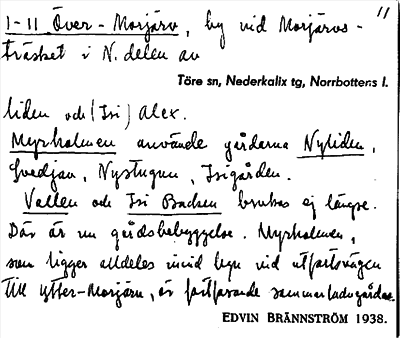 1-11 Över-Morjärv, by vid Morjärvs- 11
träsket i N. delen av
Töre sn, Nederkalix tg, Norrbottens l.
liden och (Isi) Alex.
Myrholmen använde gårdarna Nyliden,
Svedjan, Nystugun, Isigården.
Vallen och Isi Backen brukas ej längre.
Där är nu gårdsbebyggelse. Myrholmen,
som ligger alldeles invid byn vid utfartsvägen
till Ytter-Morjärv, är fortfarande sommarladugårdar.
EDVIN BRÄNNSTRÖM 1938.